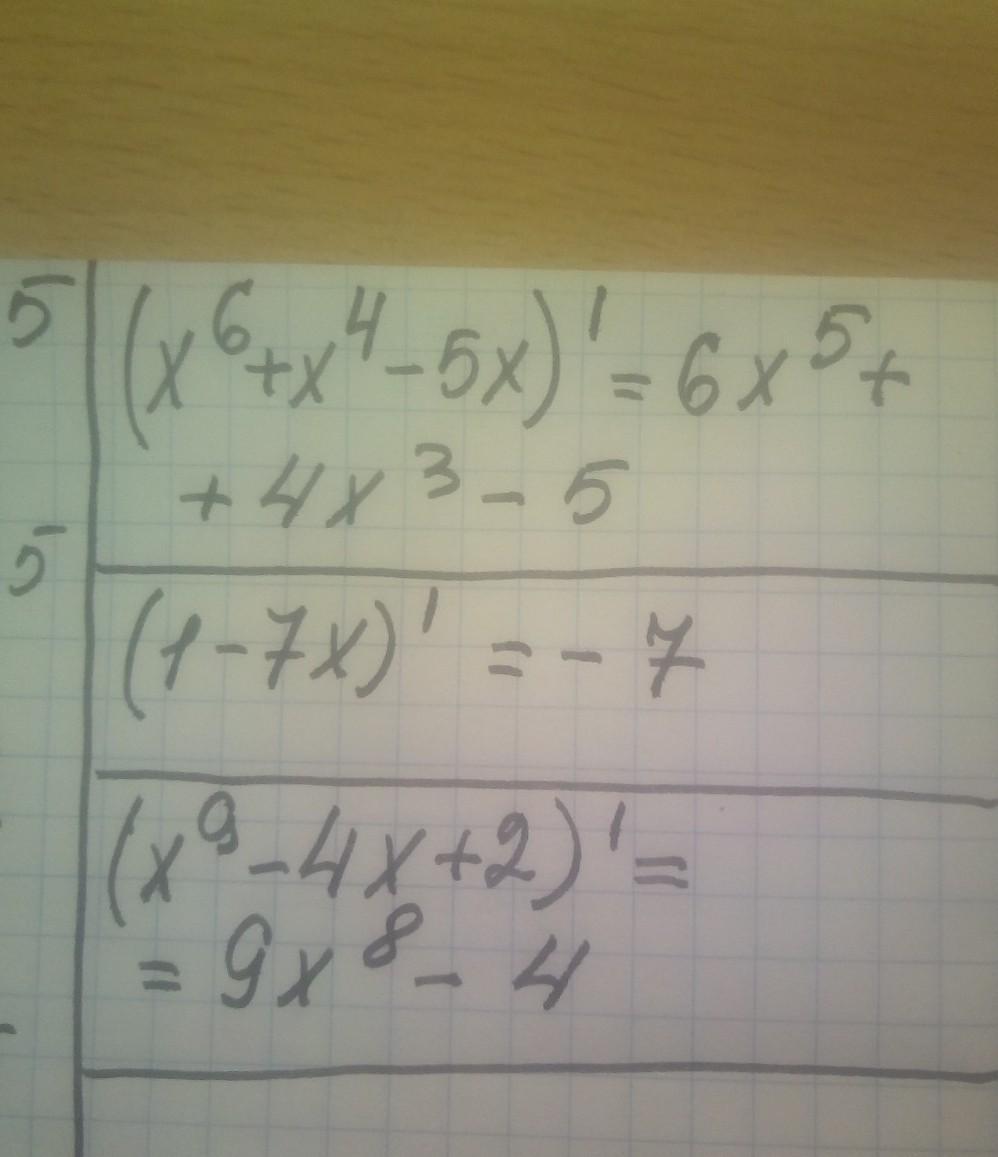 5
(x⁶+x⁴-5x)'=6x⁵+
+4x³-5
5
(1-7x)' =-7
(x⁹-4x+2)'=
=9x⁸-4